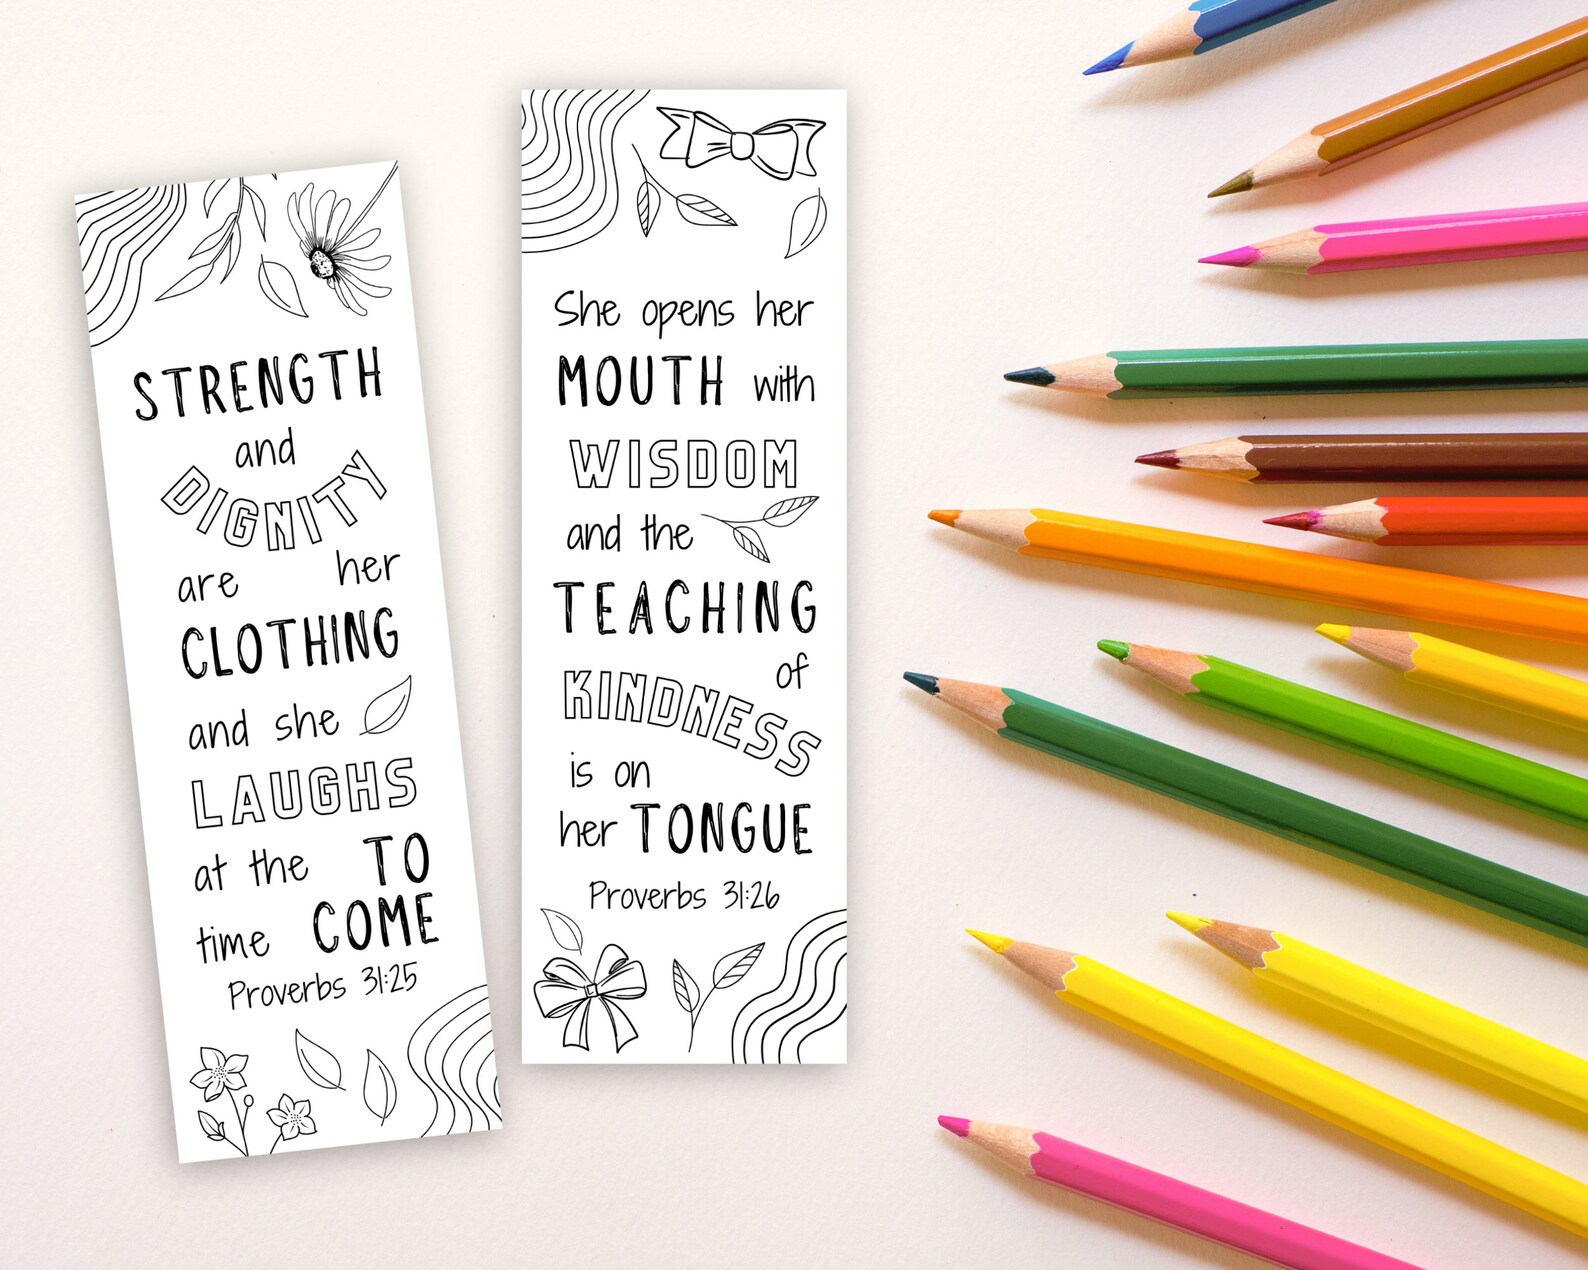 STRENGTH
and
DIGNITY
are her
CLOTHING
and she
LAUGHS
at the TO
time COME
Proverbs 31:25
She opens her
MOUTH with
WISDOM
and the
TEACHING
of
KINDNESS
is on
her TONGUE
Proverbs 31:26